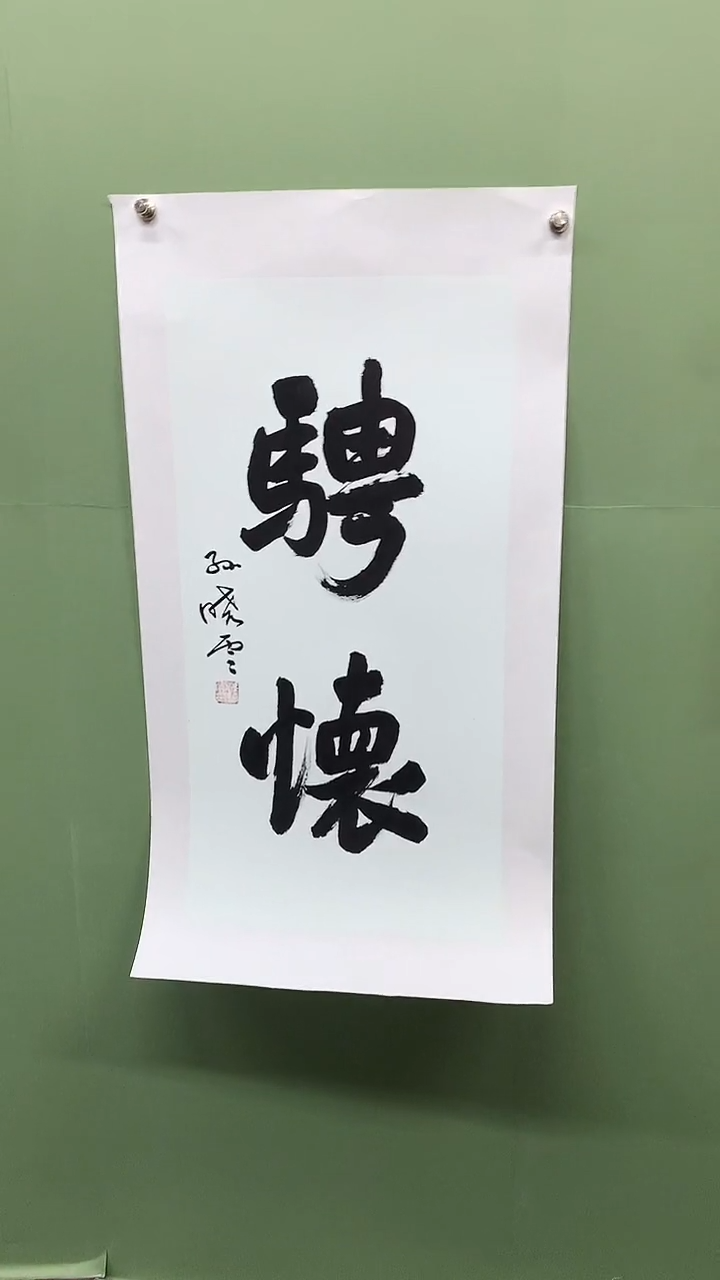 騁懷
孙晓雲